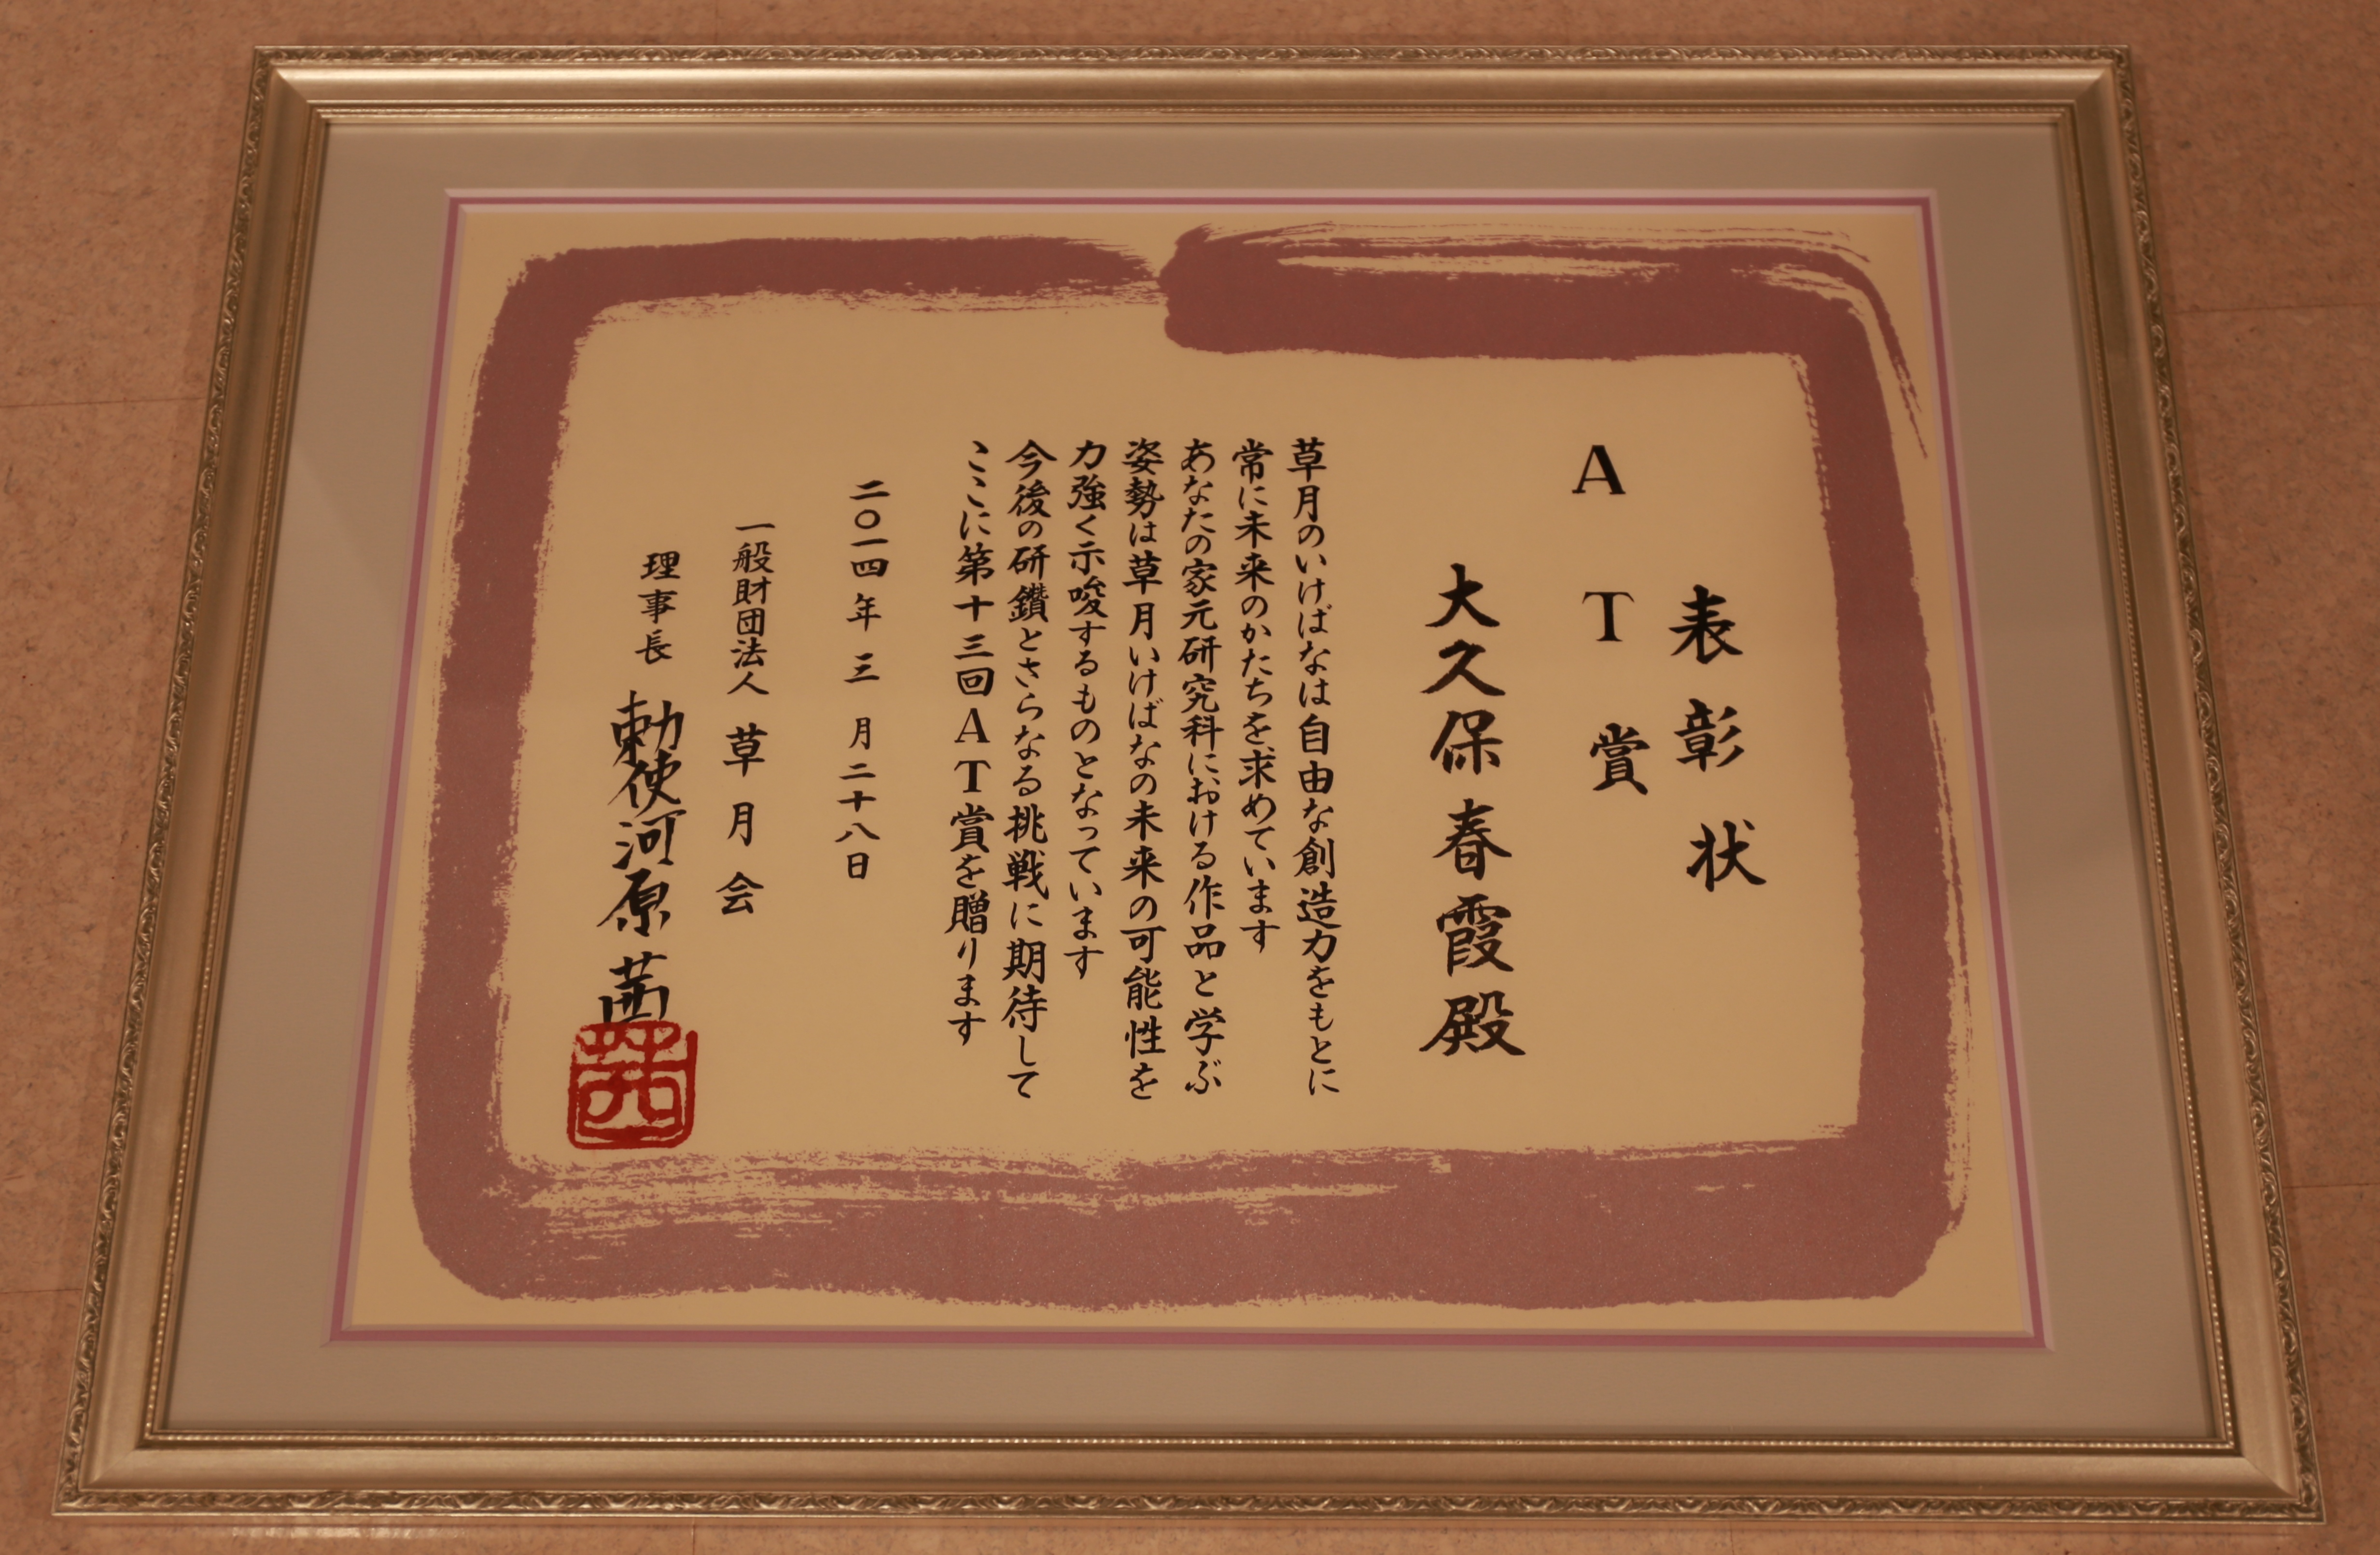 表彰状
AT賞
大久保春霞殿
草月のいけばなは自由な創造力をもとに
常に未来のかたちを求めています
あなたの家元研究科における作品と学ぶ
姿勢は草月いけばなの未来の可能性を
力強く示唆するものとなっています
今後の研鑽とさらなる挑戦に期待して
ここに第十三回AT賞を贈ります
二〇一四年三月二十八日
一般財団法人 草月会
理事長 勅使河原茜
茜